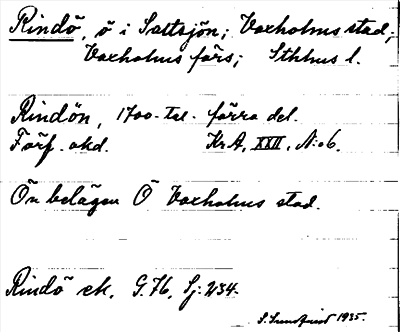 Rindö, ö i Saltsjön; Vaxholms stad;
Vaxholms förs; Sthlms l.
Rindön, 1700-tal. förra del.
Förf. okd. Kr.A, XXII, N:o 6.
Ön belägen Ö Vaxholms stad.
Rindö ek. G. 76, Sj: 234.
S. Sundqvist 1935.